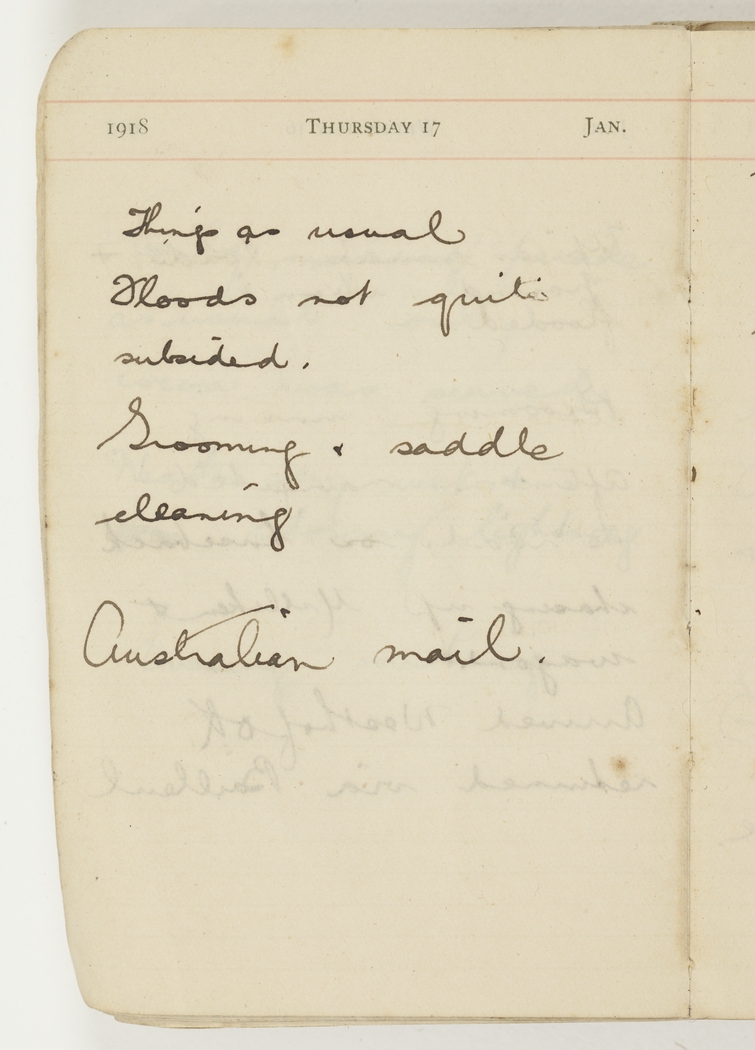 1918 THURSDAY 17 JAN.
Things as usual
Floods not quite
subsided.
Grooming & saddle
cleaning
Australian mail.